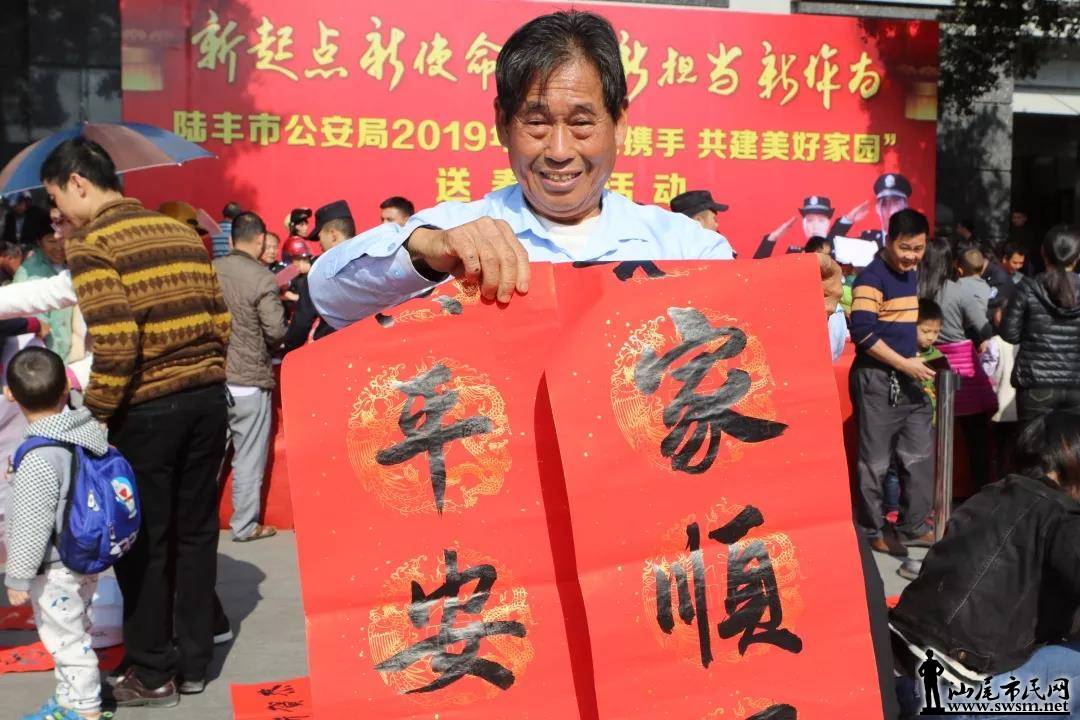 新起点新使命 新担当新作为
陆丰市公安局2019年 携手 共建美好家园"
送 活动
平安
家顺
汕尾市民网
www.swsm.net